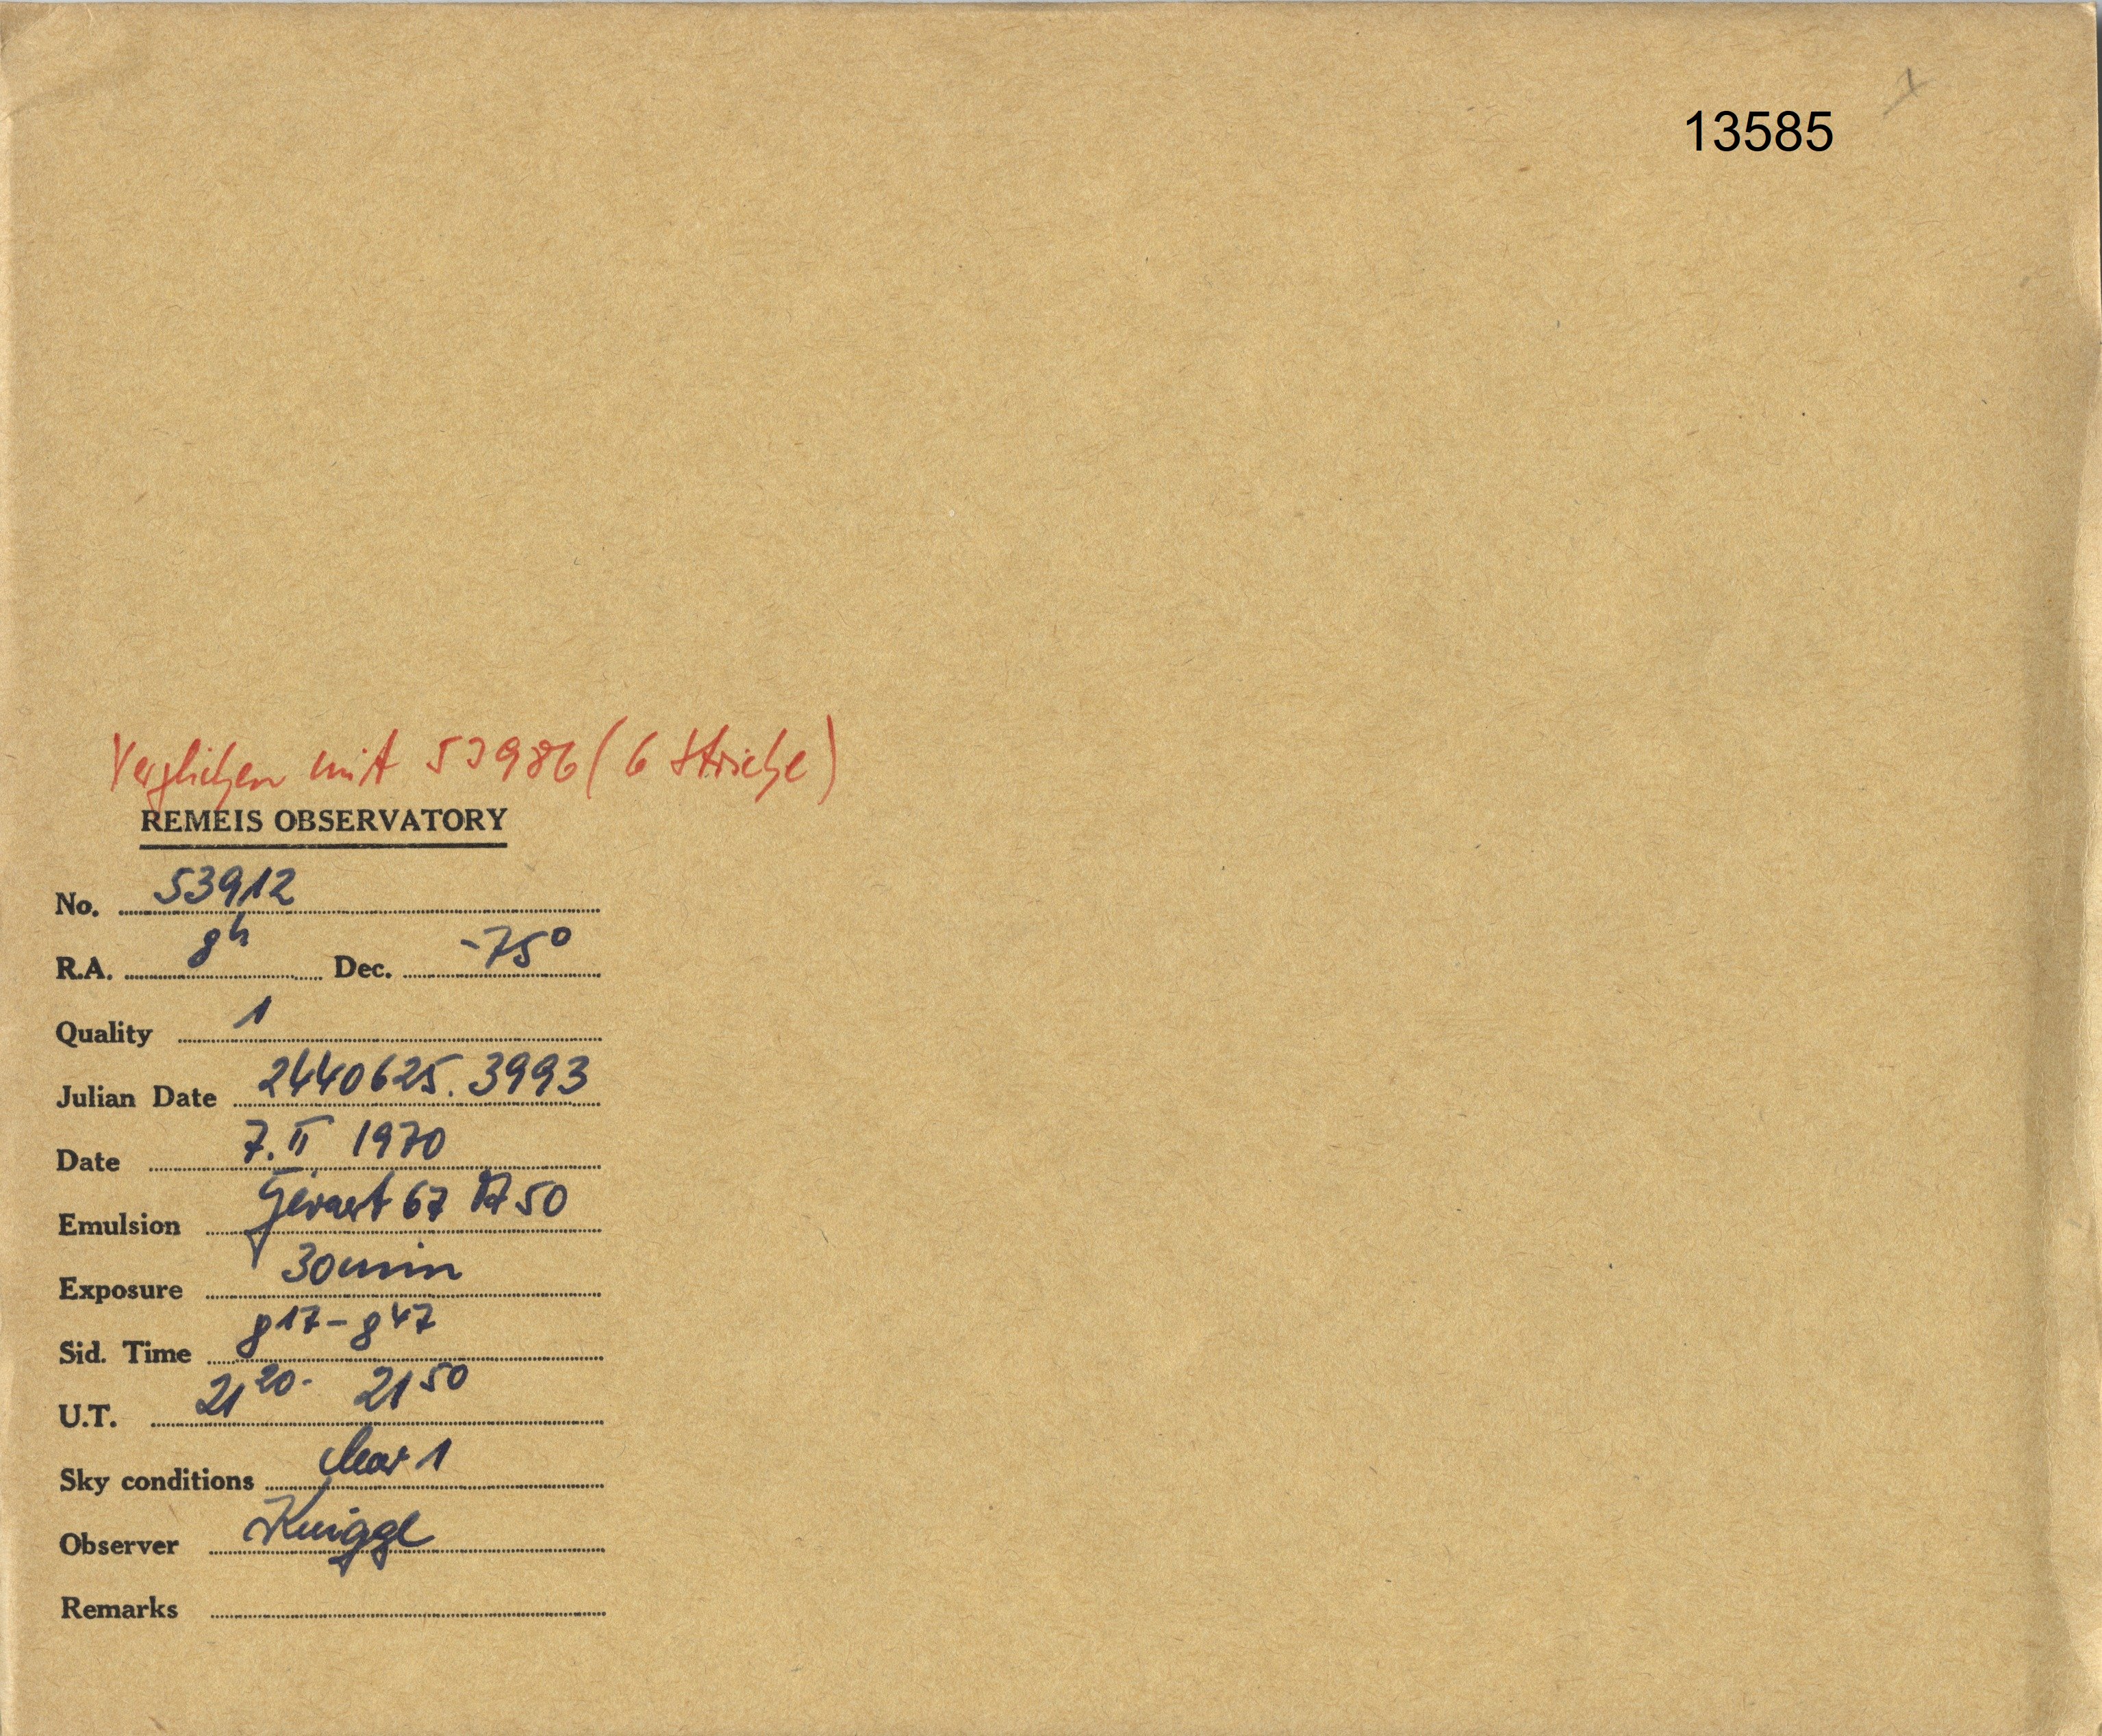 13585
Verglichen mit 53986 (6 Striche)
REMEIS OBSERVATORY
No. 53912
R.A. 8h Dec. -75°
Quality 1
Julian Date 2440625.3993
Date 7. II 1970
Emulsion Gevaert 67 A 50
Exposure 30 min
Sid. Time 8 17 - 8 47
U.T. 21 20 - 21 50
Sky conditions clear 1
Observer Knigge
Remarks